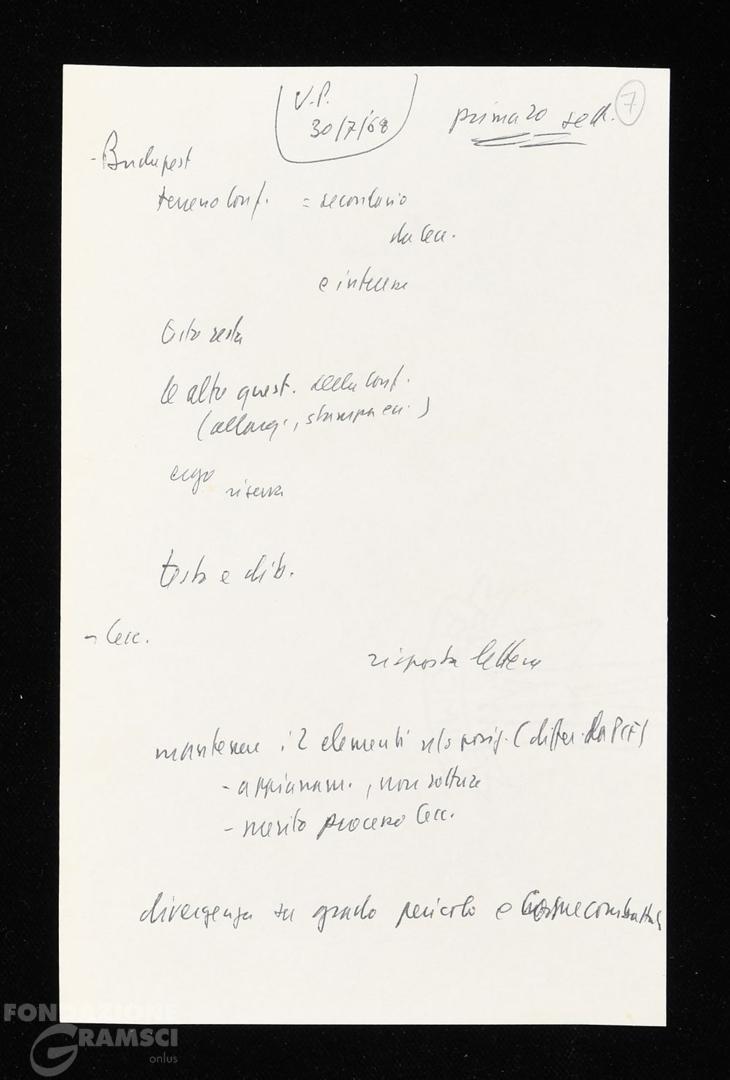 7
U.P.
30/7/68
prima 20 sett.
- Budapest
terreno conf. = secondario
da Cec.
e interesse
data resta
le altre quest. della conf.
(allarg., stampa ecc.)
ergo
riserva
testo e dib.
- Cec.
risposta lettera
mantenere i 2 elementi n/s posiz. (differ. da PCF)
- appianam., non rottura
- merito processo Cec.
divergenza su grado pericolo e come combatterlo
FONDAZIONE
GRAMSCI
onlus